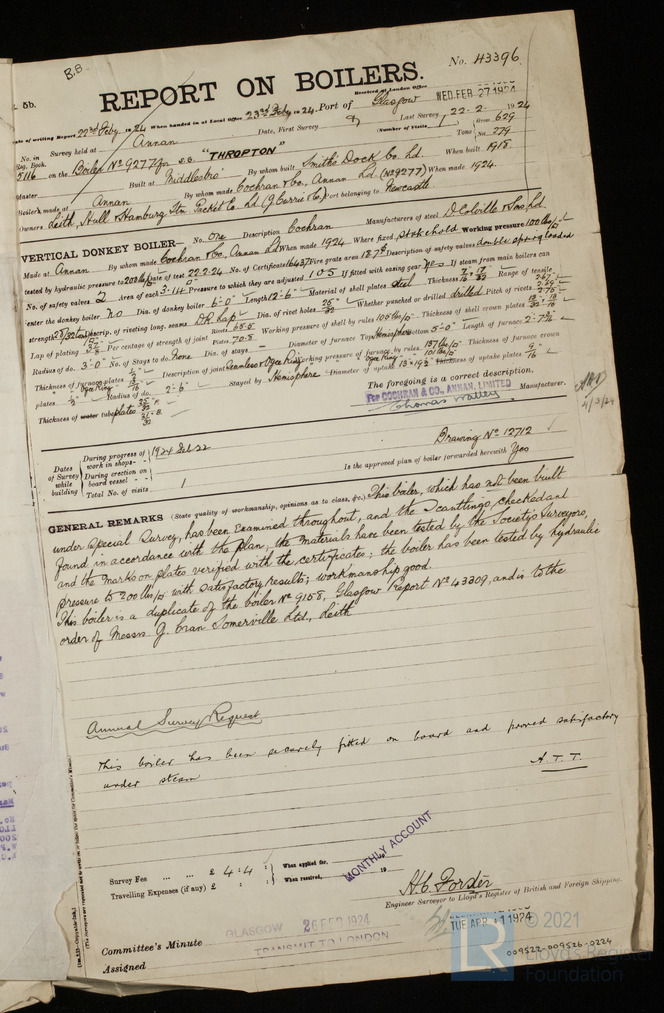 B.B.
5b.
No. 43396.
REPORT ON BOILERS.
Received at London Office WED. FEB. 27 1924
Date of writing Report 22nd Feby 1924 When handed in at Local Office 23rd Feby 1924. Port of Glasgow
No. in Survey held at Annan Date, First Survey Last Survey 22-2- 1924
Reg. Book. (Number of Visits
5116 on the Boiler No 9277 for S.S. "THROPTON" Tons Gross 629 Net 279
Master Built at Middlesbro' By whom built Smith's Dock Co. Ld When built 1918
Boilers made at Annan By whom made Cochran & Co., Annan Ld (No 9277) When made 1924.
Owners Leith, Hull & Hamburg Stm. Packet Co. Ld (J. Currie & Co.) Port belonging to Newcastle
VERTICAL DONKEY BOILER— No. One Description Cochran Manufacturers of steel D. Colville & Sons Ld.
Made at Annan By whom made Cochran & Co, Annan Ld When made 1924 Where fixed stokehold Working pressure 100 lbs/□"
tested by hydraulic pressure to 200 lbs/□" Date of test 22-2-24 No. of Certificate 16437 Fire grate area Description of safety valves double spring loaded
No. of safety valves 2 Area of each 3.14□" Pressure to which they are adjusted 105 If fitted with easing gear yes If steam from main boilers can
enter the donkey boiler no Dia. of donkey boiler 6'-0" Length 12'-6" Material of shell plates steel Thickness Range of tensile
strength Descrip. of riveting long. seams D.R. Lap Dia. of rivet holes Whether punched or drilled drilled Pitch of rivets
Lap of plating Per centage of strength of joint Rivets Plates 70.5 Working pressure of shell by rules 105 lbs/□" Thickness of shell crown plates
Radius of do. 3'-0" No. of Stays to do. None Dia. of stays Diameter of furnace Top Hemisphere Bottom 5'-0" Length of furnace
Thickness of furnace plates Description of joint Seamless & Ogee Ring Working pressure of furnace by rules Thickness of furnace crown
plates Radius of do. 2'-6" Stayed by Hemisphere Diameter of uptake Thickness of uptake plates
Thickness of water tubes plates
The foregoing is a correct description.
For COCHRAN & CO., ANNAN, LIMITED Manufacturer.
4/3/24
Dates of Survey while building
During progress of work in shops - - 1924 Feb 22
During erection on board vessel - - -
Total No. of visits 1
Drawing No 12712
Is the approved plan of boiler forwarded herewith Yes
GENERAL REMARKS (State quality of workmanship, opinions as to class, &c.) This boiler, which has not been built
under Special Survey, has been examined throughout, and the Scantlings checked and
found in accordance with the plan, the materials have been tested by the Society's Surveyors,
and the marks on plates verified with the certificates; the boiler has been tested by hydraulic
pressure to 200 lbs/□" with satisfactory results; workmanship good.
This boiler is a duplicate of the boiler No 9158, Glasgow Report No 43309, and is to the
order of Messrs J. Cran Somerville Ltd., Leith
Annual Survey Request
This boiler has been securely fitted on board and proved satisfactory
under steam
A.T.T.
Survey Fee ... ... £ 4:4: When applied for, 19
Travelling Expenses (if any) £ : : When received, 19
MONTHLY ACCOUNT
H.C. Forder
Engineer Surveyor to Lloyd's Register of British and Foreign Shipping.
GLASGOW 26 FEB 1924
Committee's Minute
TRANSMIT TO LONDON
Assigned
TUE. APR. 1 1924
© 2021
Lloyd's Register
Foundation
009522-009526-0224